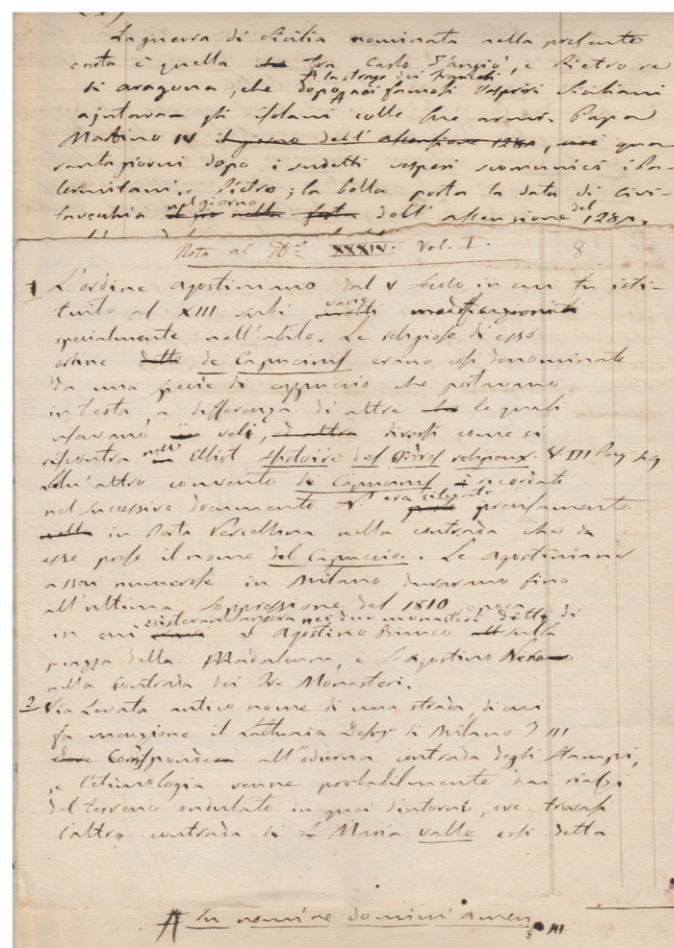 La guerra di Sicilia nominata nella presente
carta è quella tra Carlo d'angiò, e Pietro re
# la strage dei francesi
di aragona, che dopo nei famosi Vespri Siciliani
ajutava gli isolani colle sue armi. Papa
Martino IV il giorno dell'ascensione 1282, qua
ranta giorni dopo i sudetti vesperi scomunicò i Pa-
lermitani, e Pietro; la bolla porta la data di Civi-
nel giorno
tavecchia nella festa dell'ascensione del 1282.
Nota al N.º XXXIV. Vol. I. 8
1 L'ordine agostiniano dal V secolo in cui fu isti-
tuito al XIII subì varie
specialmente nell'abito. Le religiose di esso
ordine dette de Capucinis erano così denominate
da una specie di cappuccio che portavano
in testa, a differenza di altre le quali
usavano veli, diversi come si
riscontra nell' Elliot Histoire des Ordres religieux. V III Pag
Un'altro convento di Capucinis è ricordato
nel successivo documento N. era situato precisamente
nella in Porta Vercellina nella contrada che da
esse prese il nome del Capuccio. Le agostiniane
assai numerose in Milano durarono fino
all'ultima soppressione del 1810 epoca
in cui esistevano ancora nei due monasteri detti di
S. Agostino Bianco sulla
piazza della Maddalena, e S. Agostino Nero
nella contrada dei Tre Monasteri.
2 Via Levata antico nome di una strada, di cui
fa menzione il Lattuada Descr. di Milano T III
Corrisponde all'odierna contrada degli Stampi,
e l'etimologia venne probabilmente dai rialzi
del terreno ondulato in quei dintorni, ove trovasi
l'altra contrada di S. Maria valle così detta
# In nomine domini amen